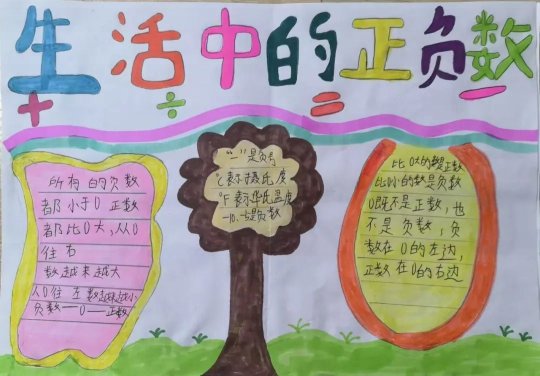 生活中的正负数
+ ÷ = −
所有的负数
都小于0正数
都比0大,从0
往右
数越来越大
从0往左数越来越小
负数—0—正数
"-"是负号
℃表示摄氏度
℉表示华氏温度
是负数
比0大的数是正数
比0小的数是负数
0既不是正数,也
不是负数,负
数在0的左边,
正数在0的右边